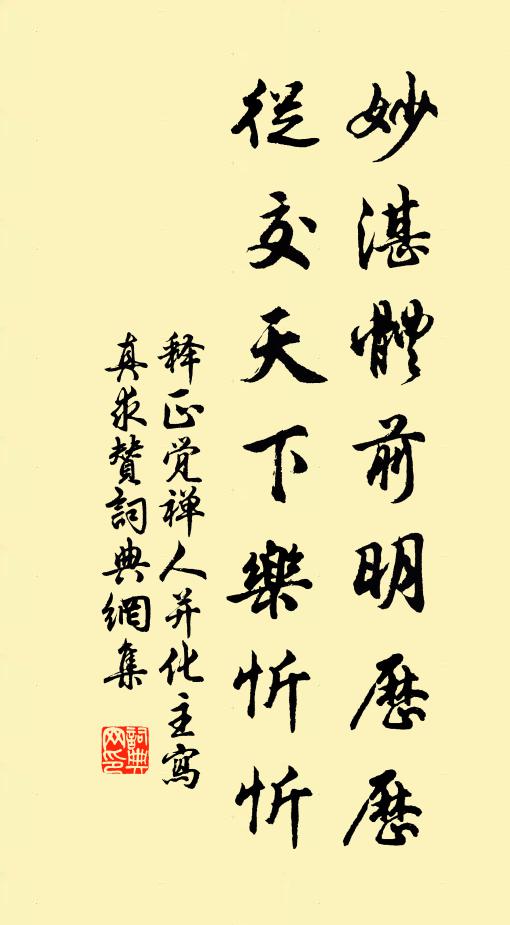 妙湛體前明歷歷
從交天下樂忻忻
释正觉禅人并化主寫
真求贊詞典網集
詞典网印